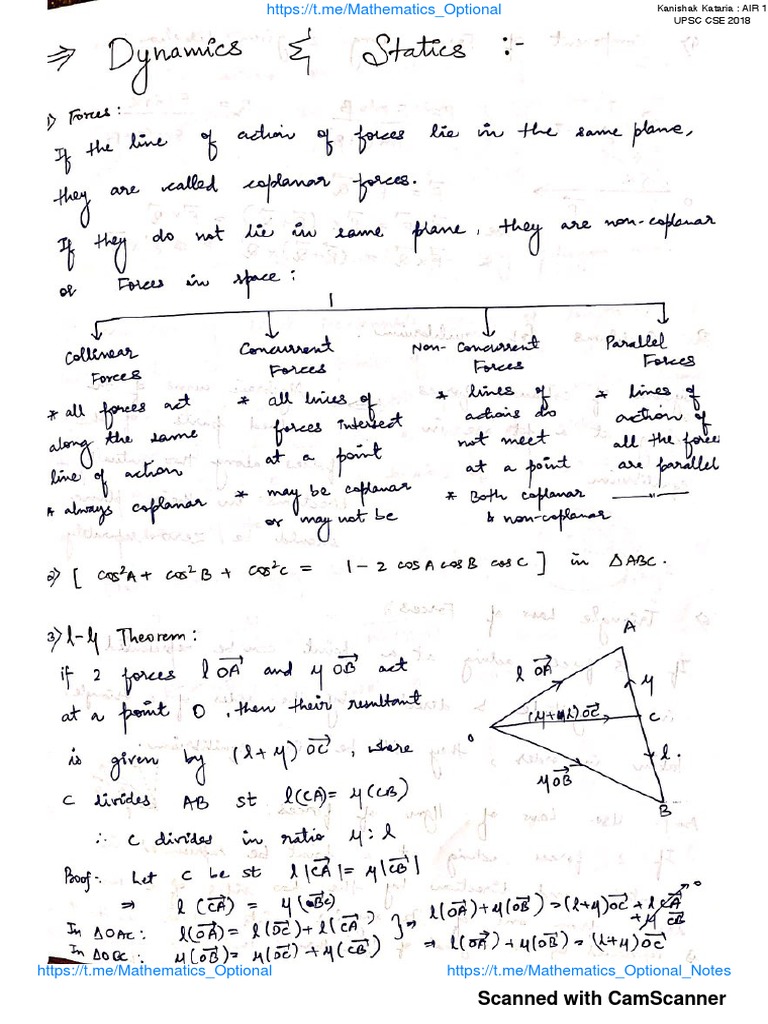 https://t.me/Mathematics_Optional
Kanishak Kataria : AIR 1
UPSC CSE 2018
⇒ Dynamics & Statics :-
1) Forces :
If the line of action of forces lie in the same plane,
they are called coplanar forces.
If they do not lie in same plane, they are non-coplanar
or Forces in space :
Collinear Forces
* all forces act
along the same
line of action
* always coplanar
Concurrent Forces
* all lines of
forces intersect
at a point
* may be coplanar
or may not be
Non-Concurrent Forces
* lines of
actions do
not meet
at a point
* Both coplanar
& non-coplanar
Parallel Forces
* lines of
action of
all the force
are parallel
—"—
2) [ cos²A + cos²B + cos²C = 1 - 2 cosA cosB cosC ] in ΔABC.
3) l-μ Theorem :
if 2 forces l OA→ and μ OB→ act
at a point O, then their resultant
is given by (l+μ) OC→, where
C divides AB st l(CA) = μ(CB)
∴ C divides in ratio μ : l
A
l OA→
μ
O
(μ+l) OC→
C
l.
μ OB→
B
Proof :- Let C be st l|CA→| = μ|CB→|
⇒ l(CA→) = μ(BC→)
In ΔOAC : l(OA→) = l(OC→) + l(CA→)
In ΔOBC : μ(OB→) = μ(OC→) + μ(CB→)
⇒ l(OA→) + μ(OB→) = (l+μ)OC→ + l CA→ + μ CB→ 0
⇒ l(OA→) + μ(OB→) = (l+μ) OC→
https://t.me/Mathematics_Optional
https://t.me/Mathematics_Optional_Notes
Scanned with CamScanner